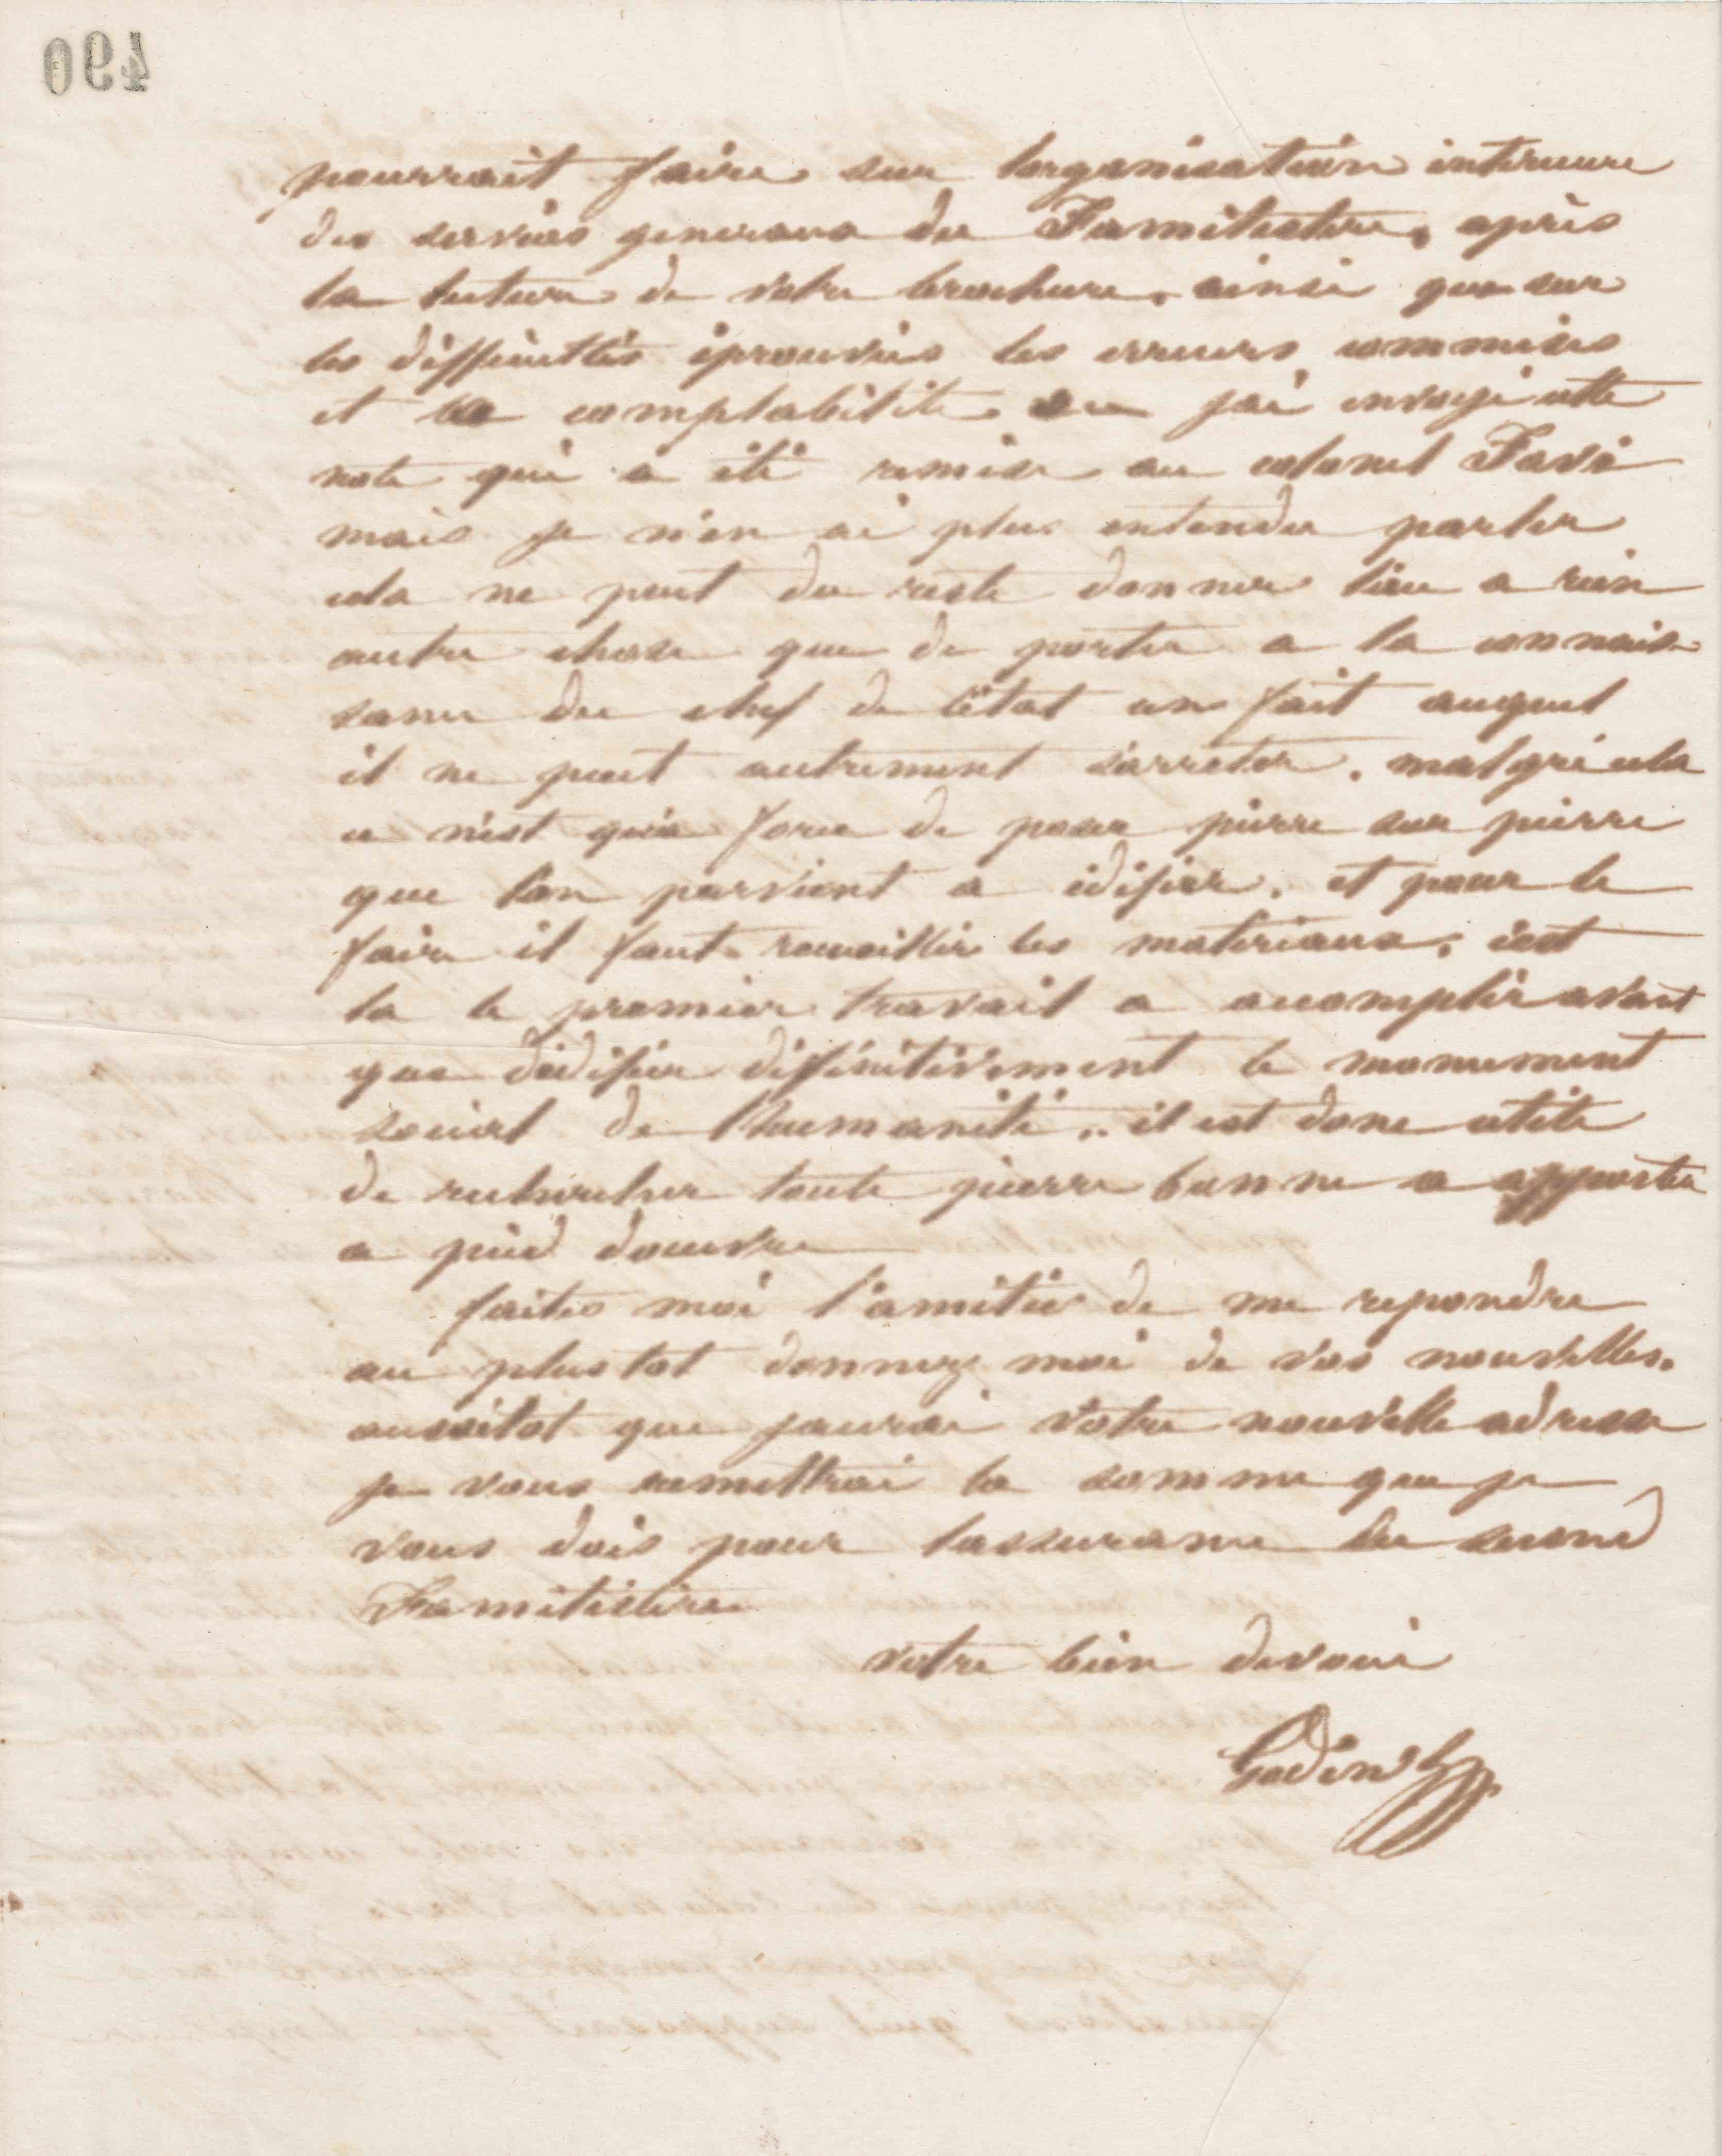 490
pourrait faire sur lorganisation interieure
des services generaux du Familistère, après
la lecture de votre brochure, ainsi que sur
les difficultés éprouvées les erreurs commises
et la comptabilité. j'ai envoyé cette
note qui a été remise au colonel Favé
mais je n'en ai plus entendu parler
cela ne peut du reste donner lieu a rien
autre chose que de porter a la connais
sance du chef de létat un fait auquel
il ne peut autrement sarreter. malgré cela
ce n'est qu'a force de poser pierre sur pierre
que lon parvient a édifier. et pour le
faire il faut recueillir les materiaux, cest
la le premier travail a accomplir avant
que dédifier difinitivement le monument
social de lhumanité.. il est donc utile
de rechercher toute pierre bonne a apporter
a pied doeuvre
faites moi l'amitié de me repondre
au plus tot donnez moi de vos nouvelles.
aussitot que jaurai votre nouvelle adresse
je vous remettrai la somme que je
vous dois pour lassurance du second
Familistère
votre bien devoué
Godin